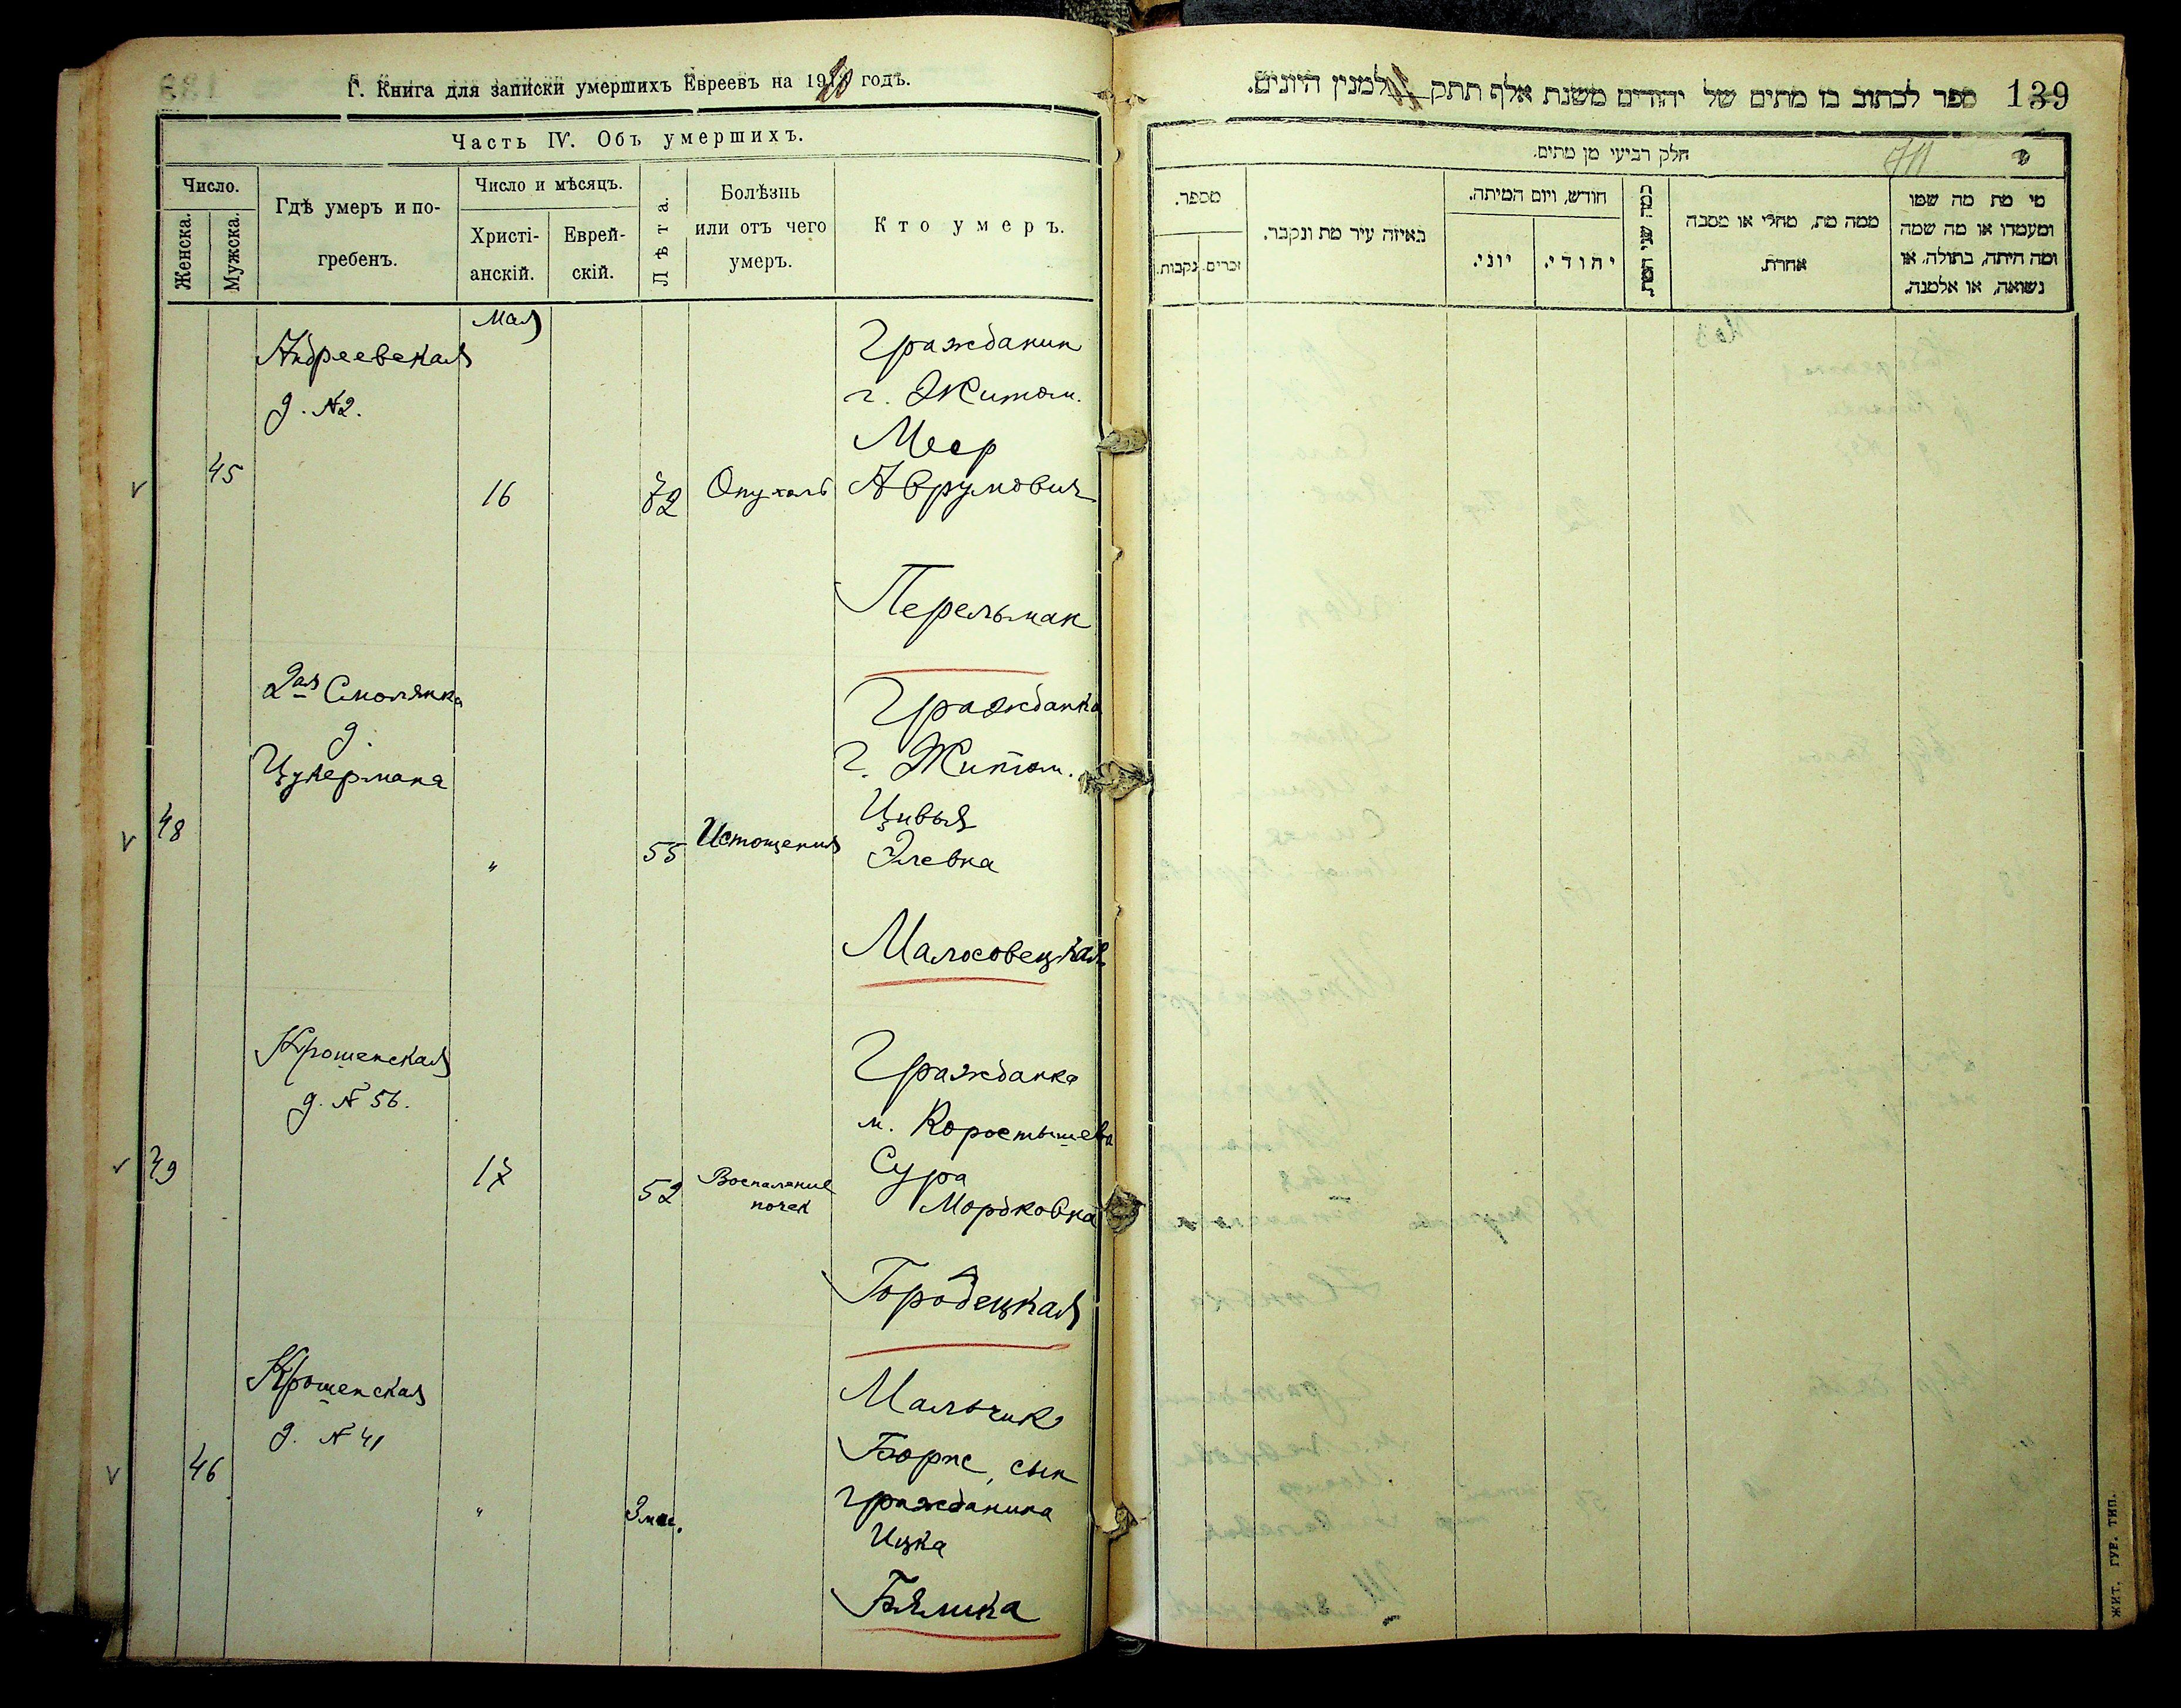 Г. Книга для записки умершихъ Евреевъ на 1920 годъ.
Часть IV. Объ умершихъ.
Число.
Женска.
Мужска.
Гдѣ умеръ и по-
гребенъ.
Число и мѣсяцъ.
Христі-
анскій.
Еврей-
скій.
Лѣта.
Болѣзнь
или отъ чего
умеръ.
Кто умеръ.
Мая
Андреевская
д. №2.
45
16
72
Опухоль
Гражданин
г. Житом.
Меер
Аврумович
Перельман
2ая Смолянка
д.
Цукермана
48
"
55
Истощения
Гражданка
г. Житом.
Цивья
Элевна
Малосовецкая
Крошенская
д. № 56.
49
17
52
Воспаление
почек
Гражданка
м. Коростышева
Сура
Мордковна
Городецкая
Крошенская
д. № 41
46
"
3 мес.
Мальчик
Борис, сын
гражданина
Ицка
Бялика
139
ספר לכתוב בו מתים של יהודים משנת אלף תתק למנין היונים.
חלק רביעי מן מתים.
מספר.
זכרים.
נקבות.
באיזה עיר מת ונקבר.
חודש, ויום המיתה.
יוני.
יהודי.
כמה שני המת
ממה מת, מחלי או מסבה
אחרת.
מי מת מה שמו
ומעמדו או מה שמה
ומה היתה, בתולה, או
נשואה, או אלמנה.
ЖИТ. ГУБ. ТИП.